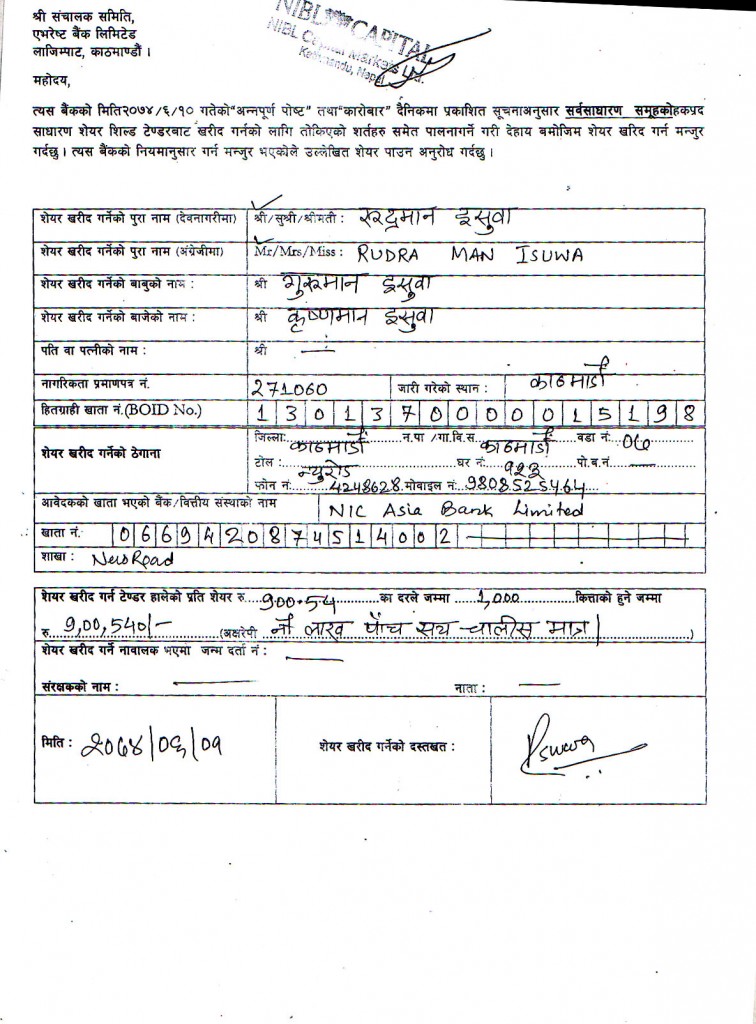 श्री संचालक समिति,
एभरेष्ट बैंक लिमिटेड
लाजिम्पाट, काठमाण्डौं ।
NIBL CAPITAL
NIBL Capital Markets Ltd.
Kathmandu, Nepal
महोदय,
त्यस बैंकको मिति२०७४/६/१० गतेको"अन्नपूर्ण पोष्ट" तथा"कारोबार" दैनिकमा प्रकाशित सूचनाअनुसार सर्वसाधारण समूहकोहकप्रद
साधारण शेयर शिल्ड टेण्डरबाट खरीद गर्नको लागि तोकिएको शर्तहरु समेत पालनागर्ने गरी देहाय बमोजिम शेयर खरिद गर्न मन्जुर
गर्दछु । त्यस बैंकको नियमानुसार गर्न मन्जुर भएकोले उल्लेखित शेयर पाउन अनुरोध गर्दछु ।
शेयर खरीद गर्नेको पुरा नाम (देवनागरीमा) श्री/सुश्री/श्रीमती : रूद्रमान इसुवा
शेयर खरीद गर्नेको पुरा नाम (अंग्रेजीमा) Mr/Mrs/Miss : RUDRA MAN ISUWA
शेयर खरीद गर्नेको बाबुको नाम : श्री गुरुमान इसुवा
शेयर खरीद गर्नेको बाजेको नाम : श्री कृष्णमान इसुवा
पति वा पत्नीको नाम : श्री —
नागरिकता प्रमाणपत्र नं. 271060 जारी गरेको स्थान : काठमाडौं
हितग्राही खाता नं.(BOID No.) 1 3 0 1 3 7 0 0 0 0 0 1 5 1 9 8
शेयर खरीद गर्नेको ठेगाना जिल्ला: काठमाडौं न.पा /गा.वि.स. काठमाडौं वडा नं:
टोल : न्युरोड घर नं: ९२३ पो.ब.नं —
फोन नं: 4248628 मोबाइल नं: 9808525464
आवेदकको खाता भएको बैंक/वित्तीय संस्थाको नाम NIC Asia Bank Limited
खाता नं. 0 6 6 9 4 2 0 8 7 4 5 1 4 0 0 2
शाखा : NewRoad
शेयर खरीद गर्न टेण्डर हालेको प्रति शेयर रु. 900.54 का दरले जम्मा 1,000 कित्ताको हुने जम्मा
रु. 9,00,540/- (अक्षरेपी नौ लाख पाँच सय चालीस मात्र।)
शेयर खरीद गर्ने नावालक भएमा जन्म दर्ता नं : —
संरक्षकको नाम : — नाता : —
मिति : २०७४/०६/०९ शेयर खरीद गर्नेको दस्तखत :